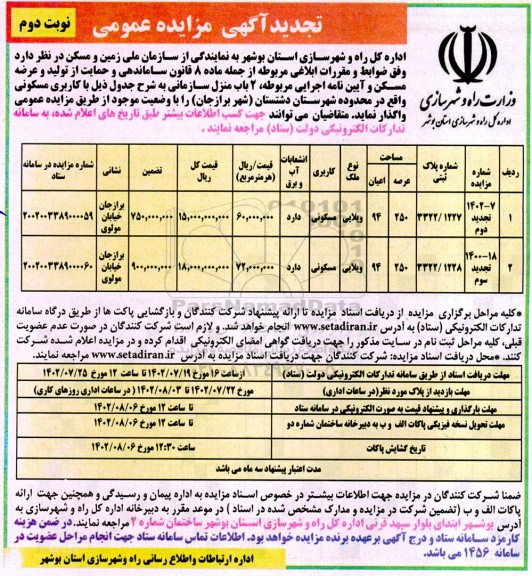 تجدیدآگهی مزایده عمومی
نوبت دوم
وزارت راه و شهرسازی
اداره کل راه و شهرسازی استان بوشهر
اداره کل راه و شهرسازی استان بوشهر به نمایندگی از سازمان ملی زمین و مسکن در نظر دارد
وفق ضوابط و مقررات ابلاغی مربوطه از جمله ماده ۸ قانون ساماندهی و حمایت از تولید و عرضه
مسکن و آیین نامه اجرایی مربوطه، ۲ باب منزل سازمانی به شرح جدول ذیل با کاربری مسکونی
واقع در محدوده شهرستان دشتستان (شهر برازجان) را با وضعیت موجود از طریق مزایده عمومی
واگذار نماید. متقاضیان می توانند جهت کسب اطلاعات بیشتر طبق تاریخ های اعلام شده، به سامانه
تدارکات الکترونیکی دولت (ستاد) مراجعه نمایند .
ردیف | شماره مزایده | شماره پلاک ثبتی | مساحت عرصه | مساحت اعیان | نوع ملک | کاربری | انشعابات آب و برق | قیمت/ریال (هرمترمربع) | قیمت کل ریال | تضمین | نشانی | شماره مزایده در سامانه ستاد
۱ | ۱۴۰۲-۷ تجدید دوم | ۳۳۲۲/۱۲۲۷ | ۲۵۰ | ۹۴ | ویلایی | مسکونی | دارد | ۶۰,۰۰۰,۰۰۰ | ۱۵,۰۰۰,۰۰۰,۰۰۰ | ۷۵۰,۰۰۰,۰۰۰ | برازجان خیابان مولوی | ۲۰۰۲۰۰۳۳۸۹۰۰۰۰۵۹
۲ | ۱۴۰۰-۱۸ تجدید سوم | ۳۳۲۲/۱۲۲۸ | ۲۵۰ | ۹۴ | ویلایی | مسکونی | دارد | ۷۲,۰۰۰,۰۰۰ | ۱۸,۰۰۰,۰۰۰,۰۰۰ | ۹۰۰,۰۰۰,۰۰۰ | برازجان خیابان مولوی | ۲۰۰۲۰۰۳۳۸۹۰۰۰۰۶۰
ParsNamadData
*کلیه مراحل برگزاری مزایده از دریافت اسناد مزایده تا ارائه پیشنهاد شرکت کنندگان و بازگشایی پاکت ها از طریق درگاه سامانه
تدارکات الکترونیکی (ستاد) به آدرس www.setadiran.ir انجام خواهد شد. و لازم است شرکت کنندگان در صورت عدم عضویت
قبلی، کلیه مراحل ثبت نام در سایت مذکور را جهت دریافت گواهی امضای الکترونیکی اقدام کرده و در مزایده اعلام شده شرکت
کنند. *محل دریافت اسناد مزایده: شرکت کنندگان جهت دریافت اسناد مزایده به آدرس www.setadiran.ir مراجعه نمایند.
مهلت دریافت اسناد از طریق سامانه تدارکات الکترونیکی دولت (ستاد) | ازساعت ۱۶ مورخ ۱۴۰۲/۰۷/۱۹ تا ساعت ۱۲ مورخ ۱۴۰۲/۰۷/۲۵
مهلت بازدید از پلاک مورد نظر (در ساعات اداری) | مورخ ۱۴۰۲/۰۷/۲۲ تا ۱۴۰۲/۰۸/۰۳ ( در ساعات اداری روزهای کاری)
مهلت بارگذاری و پیشنهاد قیمت به صورت الکترونیکی در سامانه ستاد | تا ساعت ۱۲ مورخ ۱۴۰۲/۰۸/۰۶
مهلت تحویل نسخه فیزیکی پاکات الف و ب به دبیرخانه ساختمان شماره دو | تا ساعت ۱۲ مورخ ۱۴۰۲/۰۸/۰۶
تاریخ گشایش پاکات | ساعت ۱۲:۳۰ مورخ ۱۴۰۲/۰۸/۰۶
مدت اعتبار پیشنهاد سه ماه می باشد
ضمنا شرکت کنندگان در مزایده جهت اطلاعات بیشتر در خصوص اسناد مزایده به اداره پیمان و رسیدگی و همچنین جهت ارائه
پاکات الف و ب (تضمین شرکت در مزایده و مدارک مشخص شده در اسناد ) در موعد مقرر به دبیرخانه اداره کل راه و شهرسازی به
آدرس بوشهر ابتدای بلوار سپهد قرنی اداره کل راه و شهر سازی استان بوشهر ساختمان شماره ۲ مراجعه نمایند. در ضمن هزینه
کارمزد سامانه ستاد و درج آگهی برعهده برنده مزایده خواهد بود. اطلاعات تماس سامانه ستاد جهت انجام مراحل عضویت در
سامانه ۱۴۵۶ می باشد.
اداره ارتباطات واطلاع رسانی راه وشهرسازی استان بوشهر